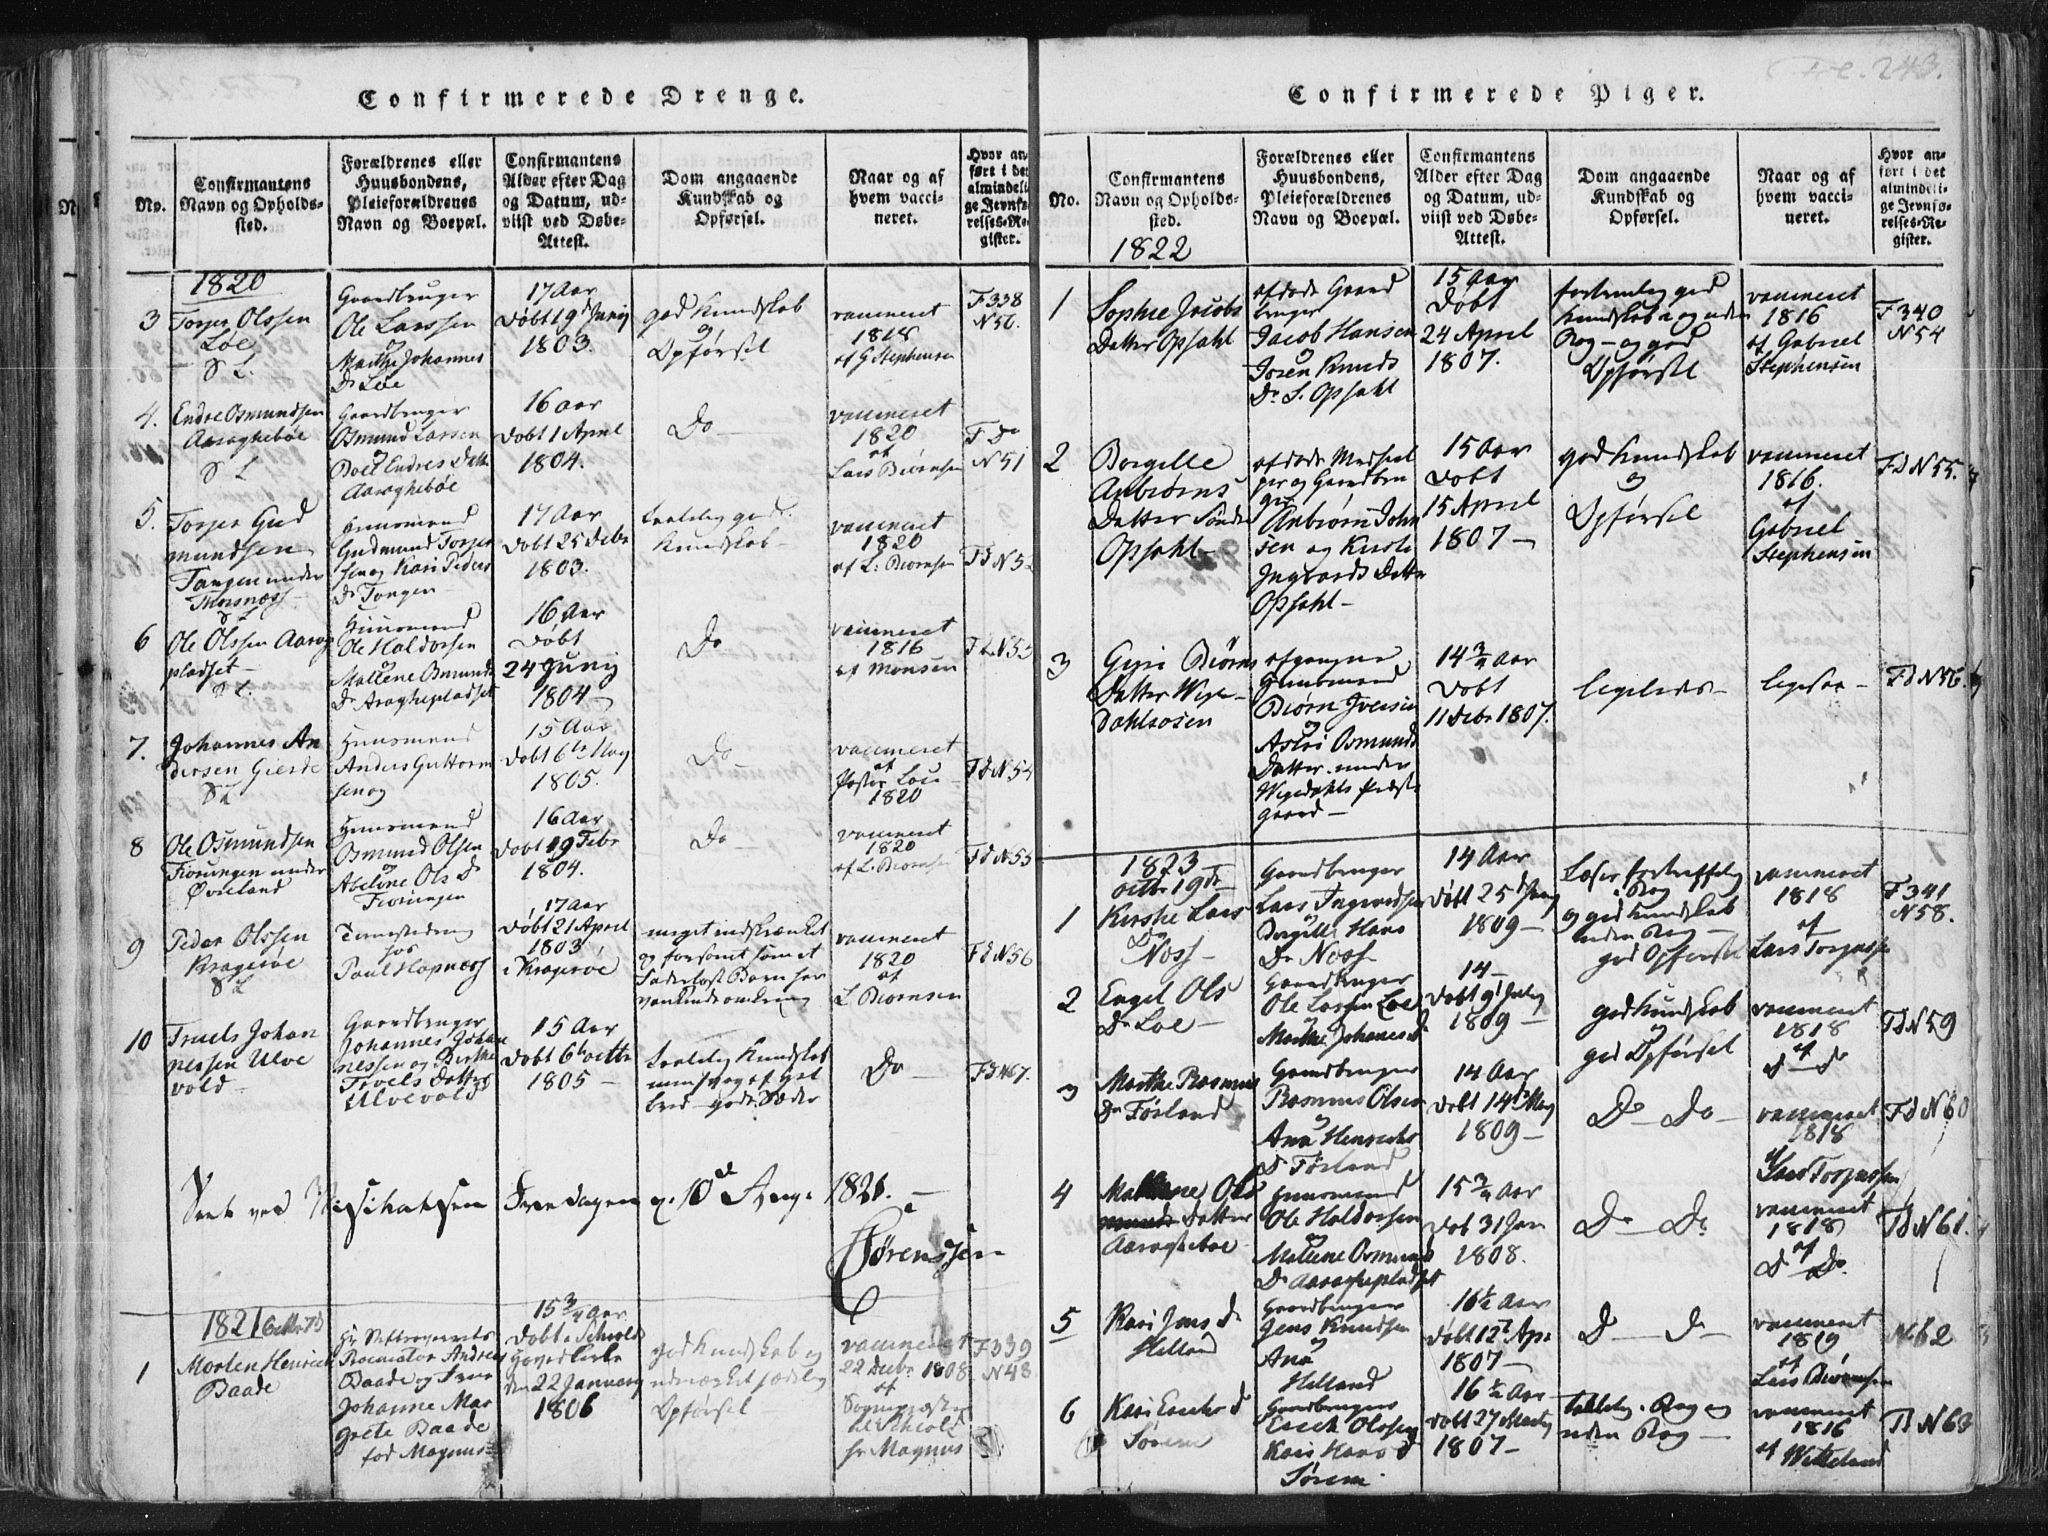 Confirmerede Drenge.
No.
Confirmantens
Navn og Opholds-
sted.
Forældrenes eller
Huusbondens,
Pleieforældrenes
Navn og Boepæl.
Confirmantens
Alder efter Dag
og Datum, ud-
viist ved Døbe-
Attest.
Dom angaaende
Kundskab og
Opførsel.
Naar og af
hvem vacci-
neret.
Hvor an-
ført i det
almindeli-
ge Jevnfø-
relses-Re-
gister.
1820
3
Torger Olssen
Løe
S L.
Gaardbruger
Ole Larssen
og
Marthe Johannes
Dr Løe
17 Aar
Døbt 19d Junij
1803.
god Kundskab
og
Opførsel
vaccineret
1818
af G Stephensen
F 338
N 50.
4.
Endre Osmundsen
Aaraghebøe
S L
Gaardbruger
Osmund Larsen
og
Boel Endres Datter
Aaraghebøe
16 aar
Døbt 1 April
1804.
Do
vaccineret
1820
af
Lars Biørnsen
F Do
N 51
5.
Torger Gud
mundsen
Tangen under
S L
Huusmand
Gudmund Torger
sen og Kari Peders
Dr Tangen
17 Aar
Døbt 25 Debr
1803.
Kundskab
vaccineret
1820
af L. Biørnsen
F d N 52
6
Ole Olssen Aarag
pladset
S L.
Huusmand
Ole Haldorsen
og
Mallene Osmunds
Dr Araghepladset
16 Aar
Døbt
24 Junij
1804
Do
vaccineret
1816
af Monsen
F d N 53
7.
Johannes An
dersen Gierde
S L
Huusmand
Anders Guttorm
sen og
15 Aar
Døbt 6te May
1805.
Do
vaccineret
af
Pastor Lous
1820
F d N 54
8
Ole Osmundsen
Tioringen under
Øvreland
Huusmand
Osmund Olsen
og
Abelone Ols Dr
Tioringen
16 Aar
Døbt 19 Febr
1804.
Do
vaccineret
1820
af L. Biørnsen
F d N 55
9
Peder Olssen
Kragerøe
S L
Tienestedreng
hos
Paul Hopness
17 Aar
Døbt 21 April
1803
i Kragerøe
meget indskrænket
og forsømt som et
Faderløst Barn har
vanket omkring
vaccineret
1820
af
L Biørnsen
F d N 56
10
Truels Johan
nessen Ulve
vold
Gaardbruger
Johannes Johan
nessen og Birthe
Troels Datter
Ulvevold
15 Aar
Døbt 6t octbr
1805
Do
F d 467.
Seet ved Visitatsen Fredagen d. 10d Aug. 1821.
Sørenssen
1821 Octbr 7d
1
Morten Henrich
Baade
Hr Stiftsoverrets
Procurator Andreas
Baade og Frue
Johanne Mar
grete Baade
fød Magnus
15 3/4 Aar
Døbt i Schiold
Hovedkirke
den 22 January
1806
god Kundskab og
udmærket sædelig
Opførsel
vaccineret
22 Decbr 1808
af
Sognepræsten
til Schiold
hr Magnus
F 339
N 48
Confirmerede Piger.
Fol. 243.
No.
Confirmantens
Navn og Opholds-
sted.
1822
Forældrenes eller
Huusbondens,
Pleieforældrenes
Navn og Boepæl.
Confirmantens
Alder efter Dag
og Datum, ud-
viist ved Døbe-
Attest.
Dom angaaende
Kundskab og
Opførsel.
Naar og af
hvem vacci-
neret.
Hvor an-
ført i det
almindeli-
ge Jevnfø-
relses-Re-
gister.
1
Sophie Jacobs
Datter Opsahl
afdøde Gaard
bruger
Jacob Hansen
og
Joren Knuds
Dr S. Opsahl
15 Aar
Døbt
24 April
1807.
fortrinlig god
Kundskab i og uden
Bog og god
Opførsel
vaccineret
1816
af Gabriel
Stephensen
F 340
N 54
2
Borgille
Anbiørns
Datter Søndre
Opsahl
afdøde Medhiel
per og Gaardbru
ger
Anbiørn John
sen og Kirsti
Ingvards Datter
Opsahl
15 Aar
Døbt
15 April
1807
god Kundskab
og
Opførsel
vaccineret
1816.
af
Gabriel
Stephensen
F d N 55.
3
Guri Biørns
Datter Wige
Dahlsosen
afgangne
Huusmand
Biørn Iversen
og
Astri Osmunds
Datter under
Wigedahls Præste
gaard
14 3/4 Aar
Døbt
11 Debr 1807.
ligeledes
ligesaa
F d N 56.
1823
octbr 19de
1
Kirstie Lars
Dr
Noss
Gaardbruger
Lars Ingvardsen
Borgille Hans
Dr Noss
14 Aar
Døbt 25d Juny
1809
Læser fortreffelig
i Bog
og god Kundskab
uden Bog
god Opførsel
vaccineret
1818
af
Lars Torgersen
F 341
N 58.
2
Engel Ols
Dr Løe
Gaardbruger
Ole Larssen Løe
og
Marthe Johannes d
14
Døbt 9t July
1809
god Kundskab
og
god Opførsel
vaccineret
1818
af
d d
F d N 59
3
Marthe Rasmus
Dr Førland
Gaardbruger
Rasmus Olsen
og
Ana Henrichs
D Førland
14 Aar
Døbt 14de May
1809
Do Do
vaccineret
1818
af
Lars Torgersen
F d N 60
4
Mallene Ols
Datter
Aaraghebøe
Huusmand
Ole Haldorsen
og
Mallene Osmunds
Dr Aaraghepladset
15 3/4 Aar
Døbt 31 Jan
1808.
Do Do
vaccineret
1818
af
D Do
F d N 61.
5
Kari Jens d
Helland
Gaardbruger
Jens Knudsen
og
Ana
Helland
16 1/2 Aar
Døbt 12t Apr.
1807
D D
vaccineret
1819
af
Lars Biørnsen
N 62
6
Kari Erichs d
Sørem
Gaardbruger
Erich Olssen
Kari Hans d
Sørem
16 1/2 Aar
Døbt 27 Marty
1807
taalelig i Bog og
uden Bog
vaccineret
1816
af Wetteland
F d N 63